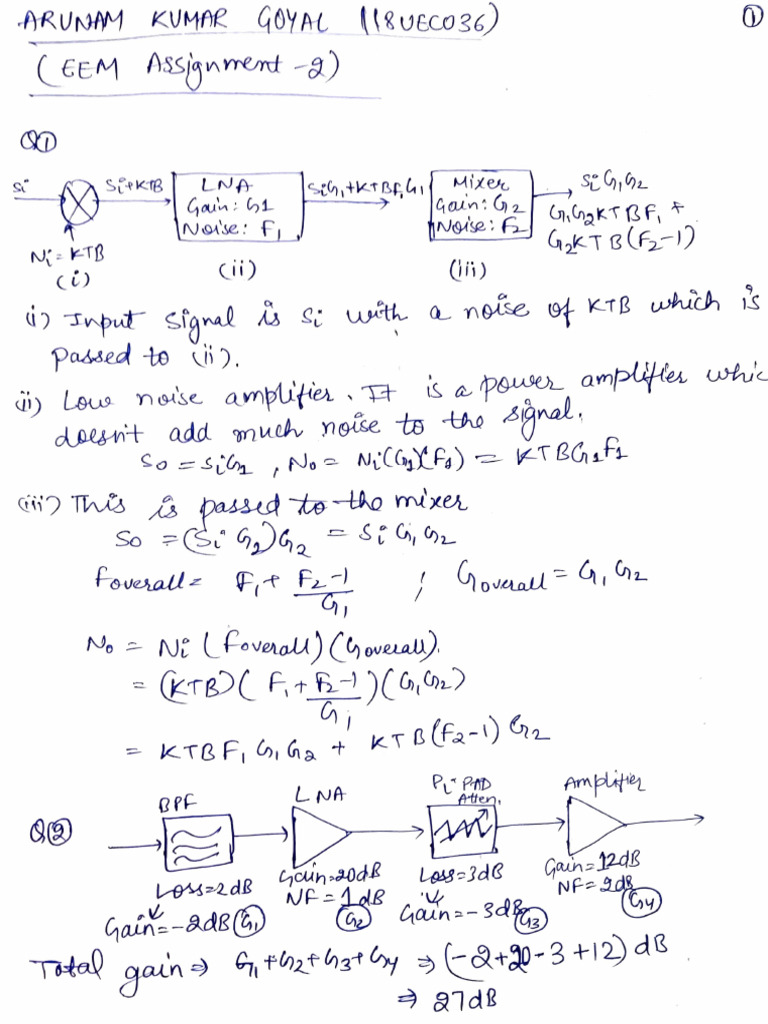 ARUNAM KUMAR GOYAL (18UEC036)
①
(EEM Assignment -2)
Q①
Si
Si+KTB
LNA
Gain: G1
Noise: F1
SiG1+KTBF1G1
Mixer
Gain: G2
Noise: F2
SiG1G2
G1G2KTBF1 +
G2KTB(F2-1)
Ni = KTB
(i)
(ii)
(iii)
(i) Input signal is Si with a noise of KTB which is
passed to (ii).
(ii) Low noise amplifier. It is a power amplifier whic
doesn't add much noise to the signal.
So = SiG1 , No = Ni(G1)(F1) = KTBG1F1
(iii) This is passed to the mixer
So = (Si G1)G2 = Si G1 G2
Foverall = F1 + F2-1 / G1 ; Goverall = G1 G2
No = Ni (Foverall)(Goverall).
= (KTB)( F1 + F2-1 / G1 )(G1G2)
= KTBF1G1G2 + KTB(F2-1) G2
Q②
BPF
LNA
Pi-PAD
Atten.
Amplifier
Loss=2dB
Gain=20dB
NF=1dB
Loss=3dB
Gain=12dB
NF=2dB
Gain=-2dB G1
G2
Gain=-3dB G3
G4
Total gain ⇒ G1+G2+G3+G4 ⇒ (-2+20-3+12) dB
⇒ 27dB